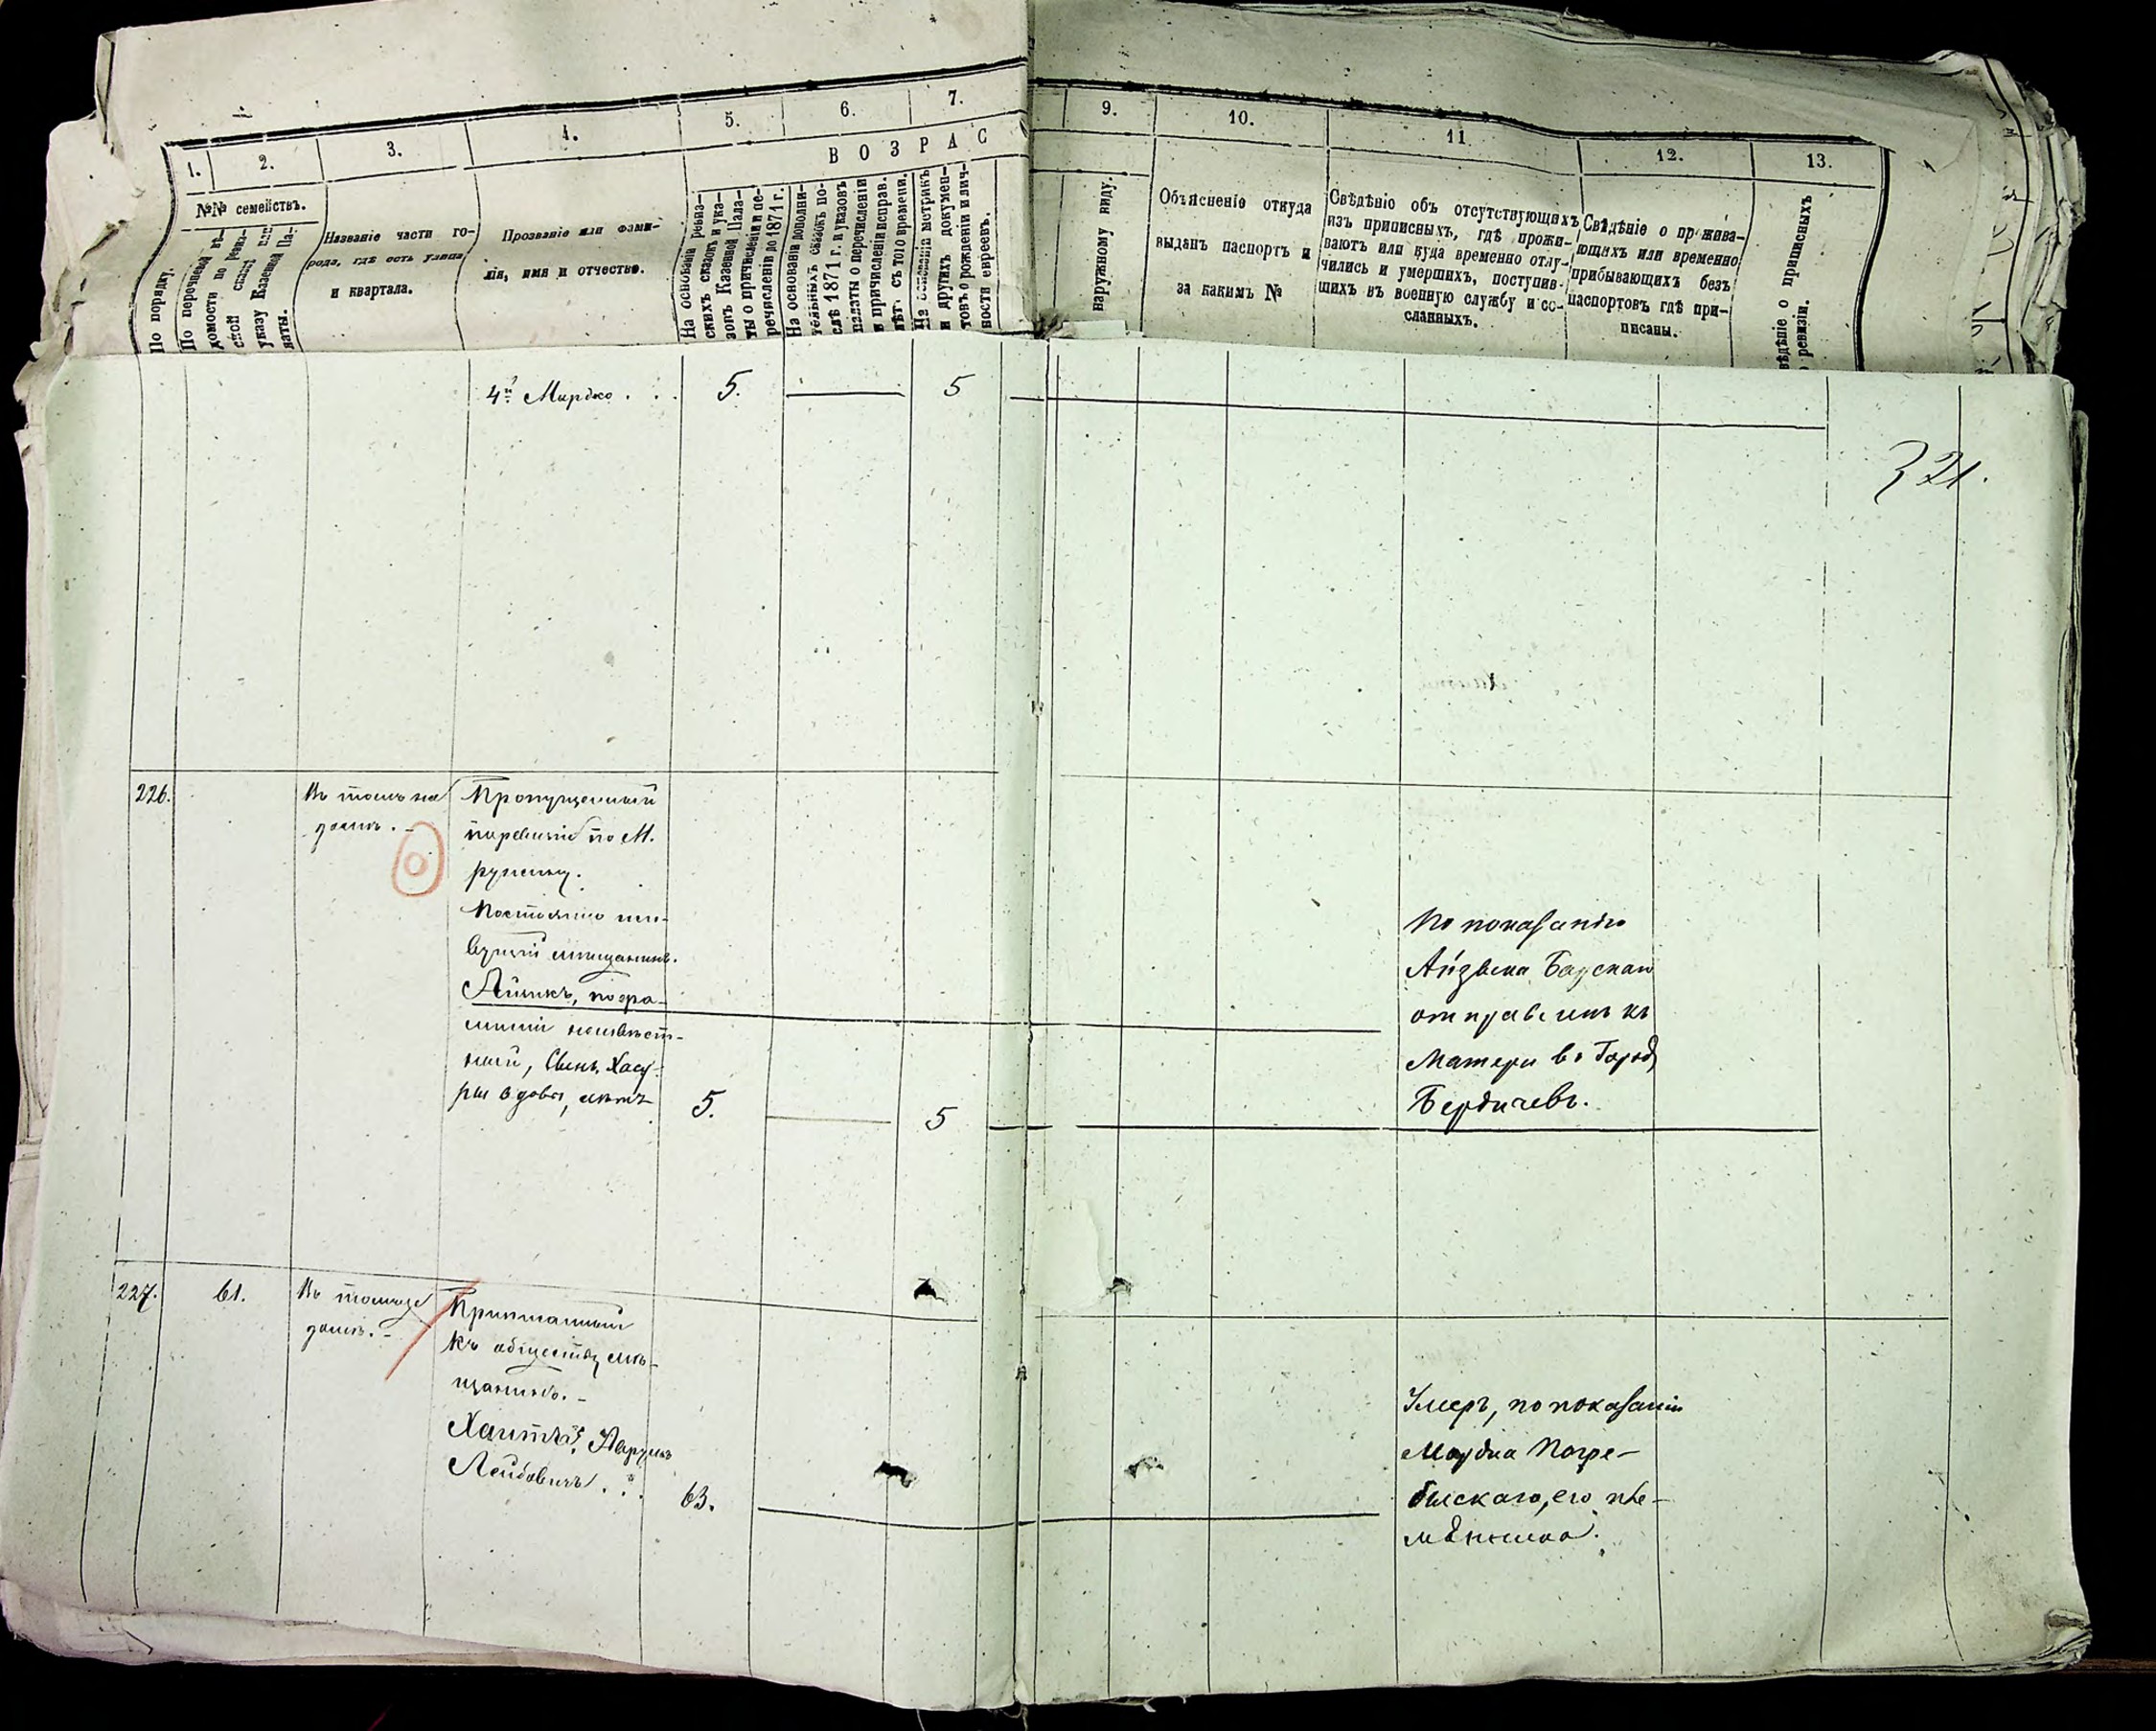 1.
2.
3.
4.
5.
6.
7.
9.
10.
11
12.
13.
ВОЗРАС
№№ семействъ.
По порядку.
По перечневой вѣ-
домости по ревиз-
ской сказкѣ или
указу Казенной Па-
латы.
Названіе части го-
рода, гдѣ есть улица
и квартала.
Прозваніе или фами-
лія, имя и отчество.
На основаніи ревиз-
скихъ сказокъ и ука-
зовъ Казенной Пала-
ты о причисленіи и пе-
речисленіи до 1871 г.
На основаніи дополни-
тельныхъ сказокъ по-
слѣ 1871 г. и указовъ
палаты о перечисленіи
и причисленіи исправ.
лѣтъ съ того времени.
На основаніи метрикъ
и другихъ докумен-
товъ о рожденіи и лич-
ности евреевъ.
наружному виду.
Объясненіе откуда
выданъ паспортъ и
за какимъ №
Свѣдѣніе объ отсутствующихъ
изъ приписныхъ, гдѣ прожи-
ваютъ или куда временно отлу-
чились и умершихъ, поступив-
шихъ въ военную службу и со-
сланныхъ.
Свѣдѣніе о прожива-
ющихъ или временно
прибывающихъ безъ
паспортовъ гдѣ при-
писаны.
вѣдѣніе о приписныхъ
ревизіи.
4й Мирдко . . .
5.
5
321.
226.
Въ томъ же
домѣ. -
Пропущенный
по ревизіи по М.
рушны.
Постоянно жи-
вущій мѣщанинъ.
Айзикъ, по фа-
миліи неизвѣст-
ный, Сынъ Хасу-
ры вдовы, лѣтъ
5.
5
По показанію
Айзика Барскаго
отправленъ къ
Матери въ Городъ
Бердичевъ.
227.
61.
Въ томъ же
домѣ. -
Приписанный
къ обществу мѣ-
щанинъ. -
Хаитъ, Аврумъ
Лейбовичъ . . .
63.
Умеръ, по показанію
Мордка Погре-
быскаго, его пле-
мянника.